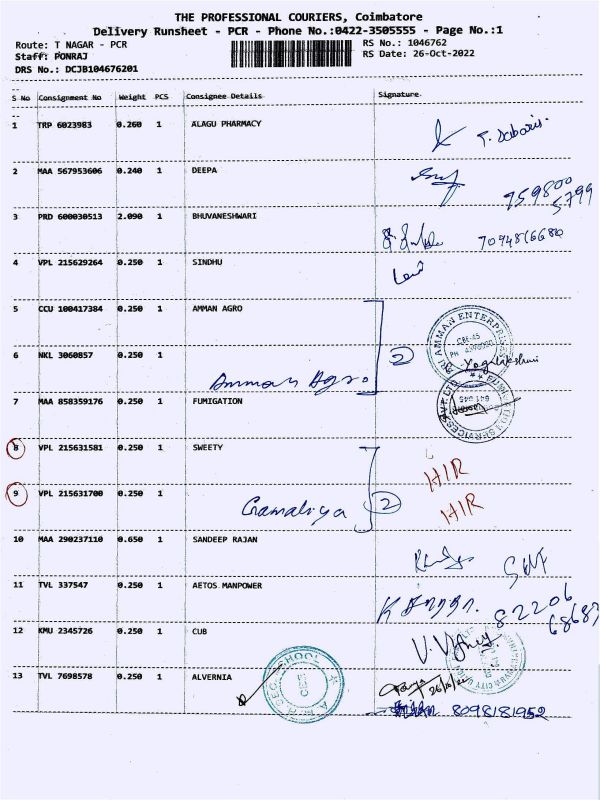 THE PROFESSIONAL COURIERS, Coimbatore
Delivery Runsheet - PCR - Phone No.:0422-3505555 - Page No.:1
Route: T NAGAR - PCR
RS No.: 1046762
Staff: PONRAJ
RS Date: 26-Oct-2022
DRS No.: DCJB104676201
S No Consignment No Weight PCS Consignee Details Signature
1 TRP 6023983 0.260 1 ALAGU PHARMACY
2 MAA 567953606 0.240 1 DEEPA
759800
5799
3 PRD 600030513 2.090 1 BHUVANESHWARI
4 VPL 215629264 0.250 1 SINDHU
5 CCU 100417384 0.250 1 AMMAN AGRO
6 NKL 3060857 0.250 1
Amman Agro 2
7 MAA 858359176 0.250 1 FUMIGATION
8 VPL 215631581 0.250 1 SWEETY
HIR
9 VPL 215631700 0.250 1
2 HIR
10 MAA 290237110 0.650 1 SANDEEP RAJAN
11 TVL 337547 0.250 1 AETOS MANPOWER
82206
68687
12 KMU 2345726 0.250 1 CUB
13 TVL 7698578 0.250 1 ALVERNIA
8098181952